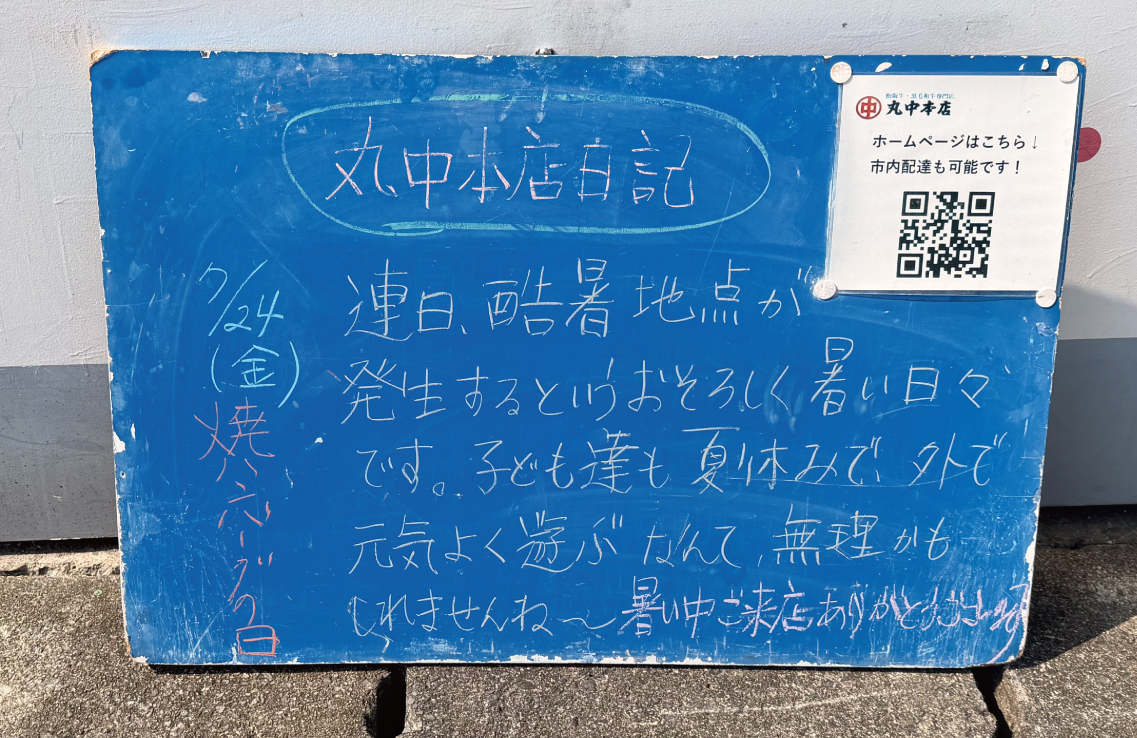 丸中本店日記
7/24
(金)
焼ハンバーグの日
連日、酷暑地点が
発生するというおそろしく暑い日々
です。子ども達も夏休みで、外で
元気よく遊ぶなんて、無理かも
しれませんね〜暑い中ご来店ありがとうございます
松阪牛・黒毛和牛専門店
中 丸中本店
ホームページはこちら↓
市内配達も可能です！